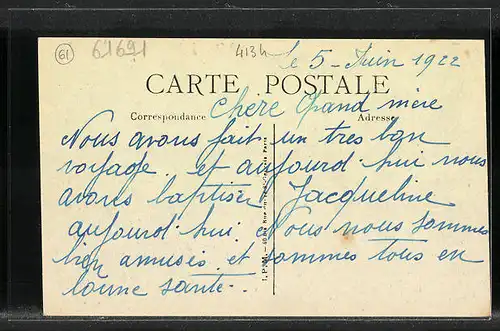 61 61691 413h le 5 - Juin 1922
CARTE POSTALE
Correspondance Chère Grand mère Adresse
Nous avons fait un tres bon
voyage et aujourd'hui nous
avons baptiser Jacqueline
aujourd'hui. Nous nous sommes
bien amusés et sommes tous en
bonne santé.